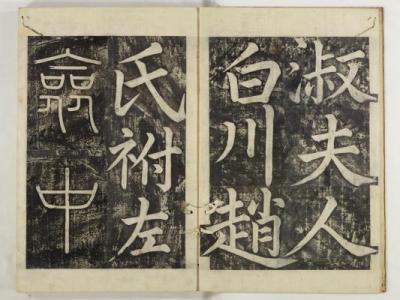 淑夫人
白川趙
氏祔左
僉中